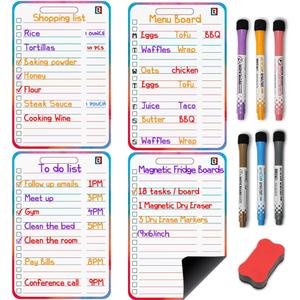 Shopping list
Rice 1 OUNCE
Tortillas
Baking powder
Honey
Flour
Steak Sauce
Cooking Wine
Menu Board
M Eggs Tofu BBQ
T Waffles Wrap
W Oats chicken
T Eggs Tofu
F Juice Taco
S Butter BBQ
S Waffles Wrap
To do list
Follow up emails 1PM
Meet up 3PM
Gym 4PM
Clean the bed 5PM
Clean the room
Pay Bills 8PM
Conference call 9PM
Magnetic Fridge Boards
18 tasks / board
1 Magnetic Dry Eraser
3 Dry Erase Markers
(9x6)inch